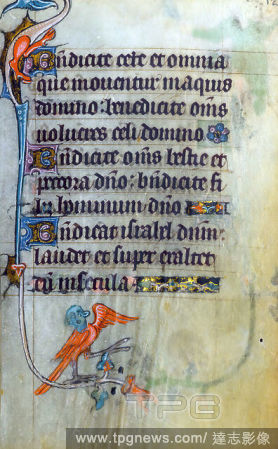 Bndicite cete et omnia
que mouentur in aquis
domino: benedicite oms
uolucres celi domino
Bndicite oms bestie et
pecora dno: bndicite fi
lii hominum dno
Bndicat israel dnm
laudet et super exaltet
eu in secula
TPG
www.tpgnews.com/ 達志影像